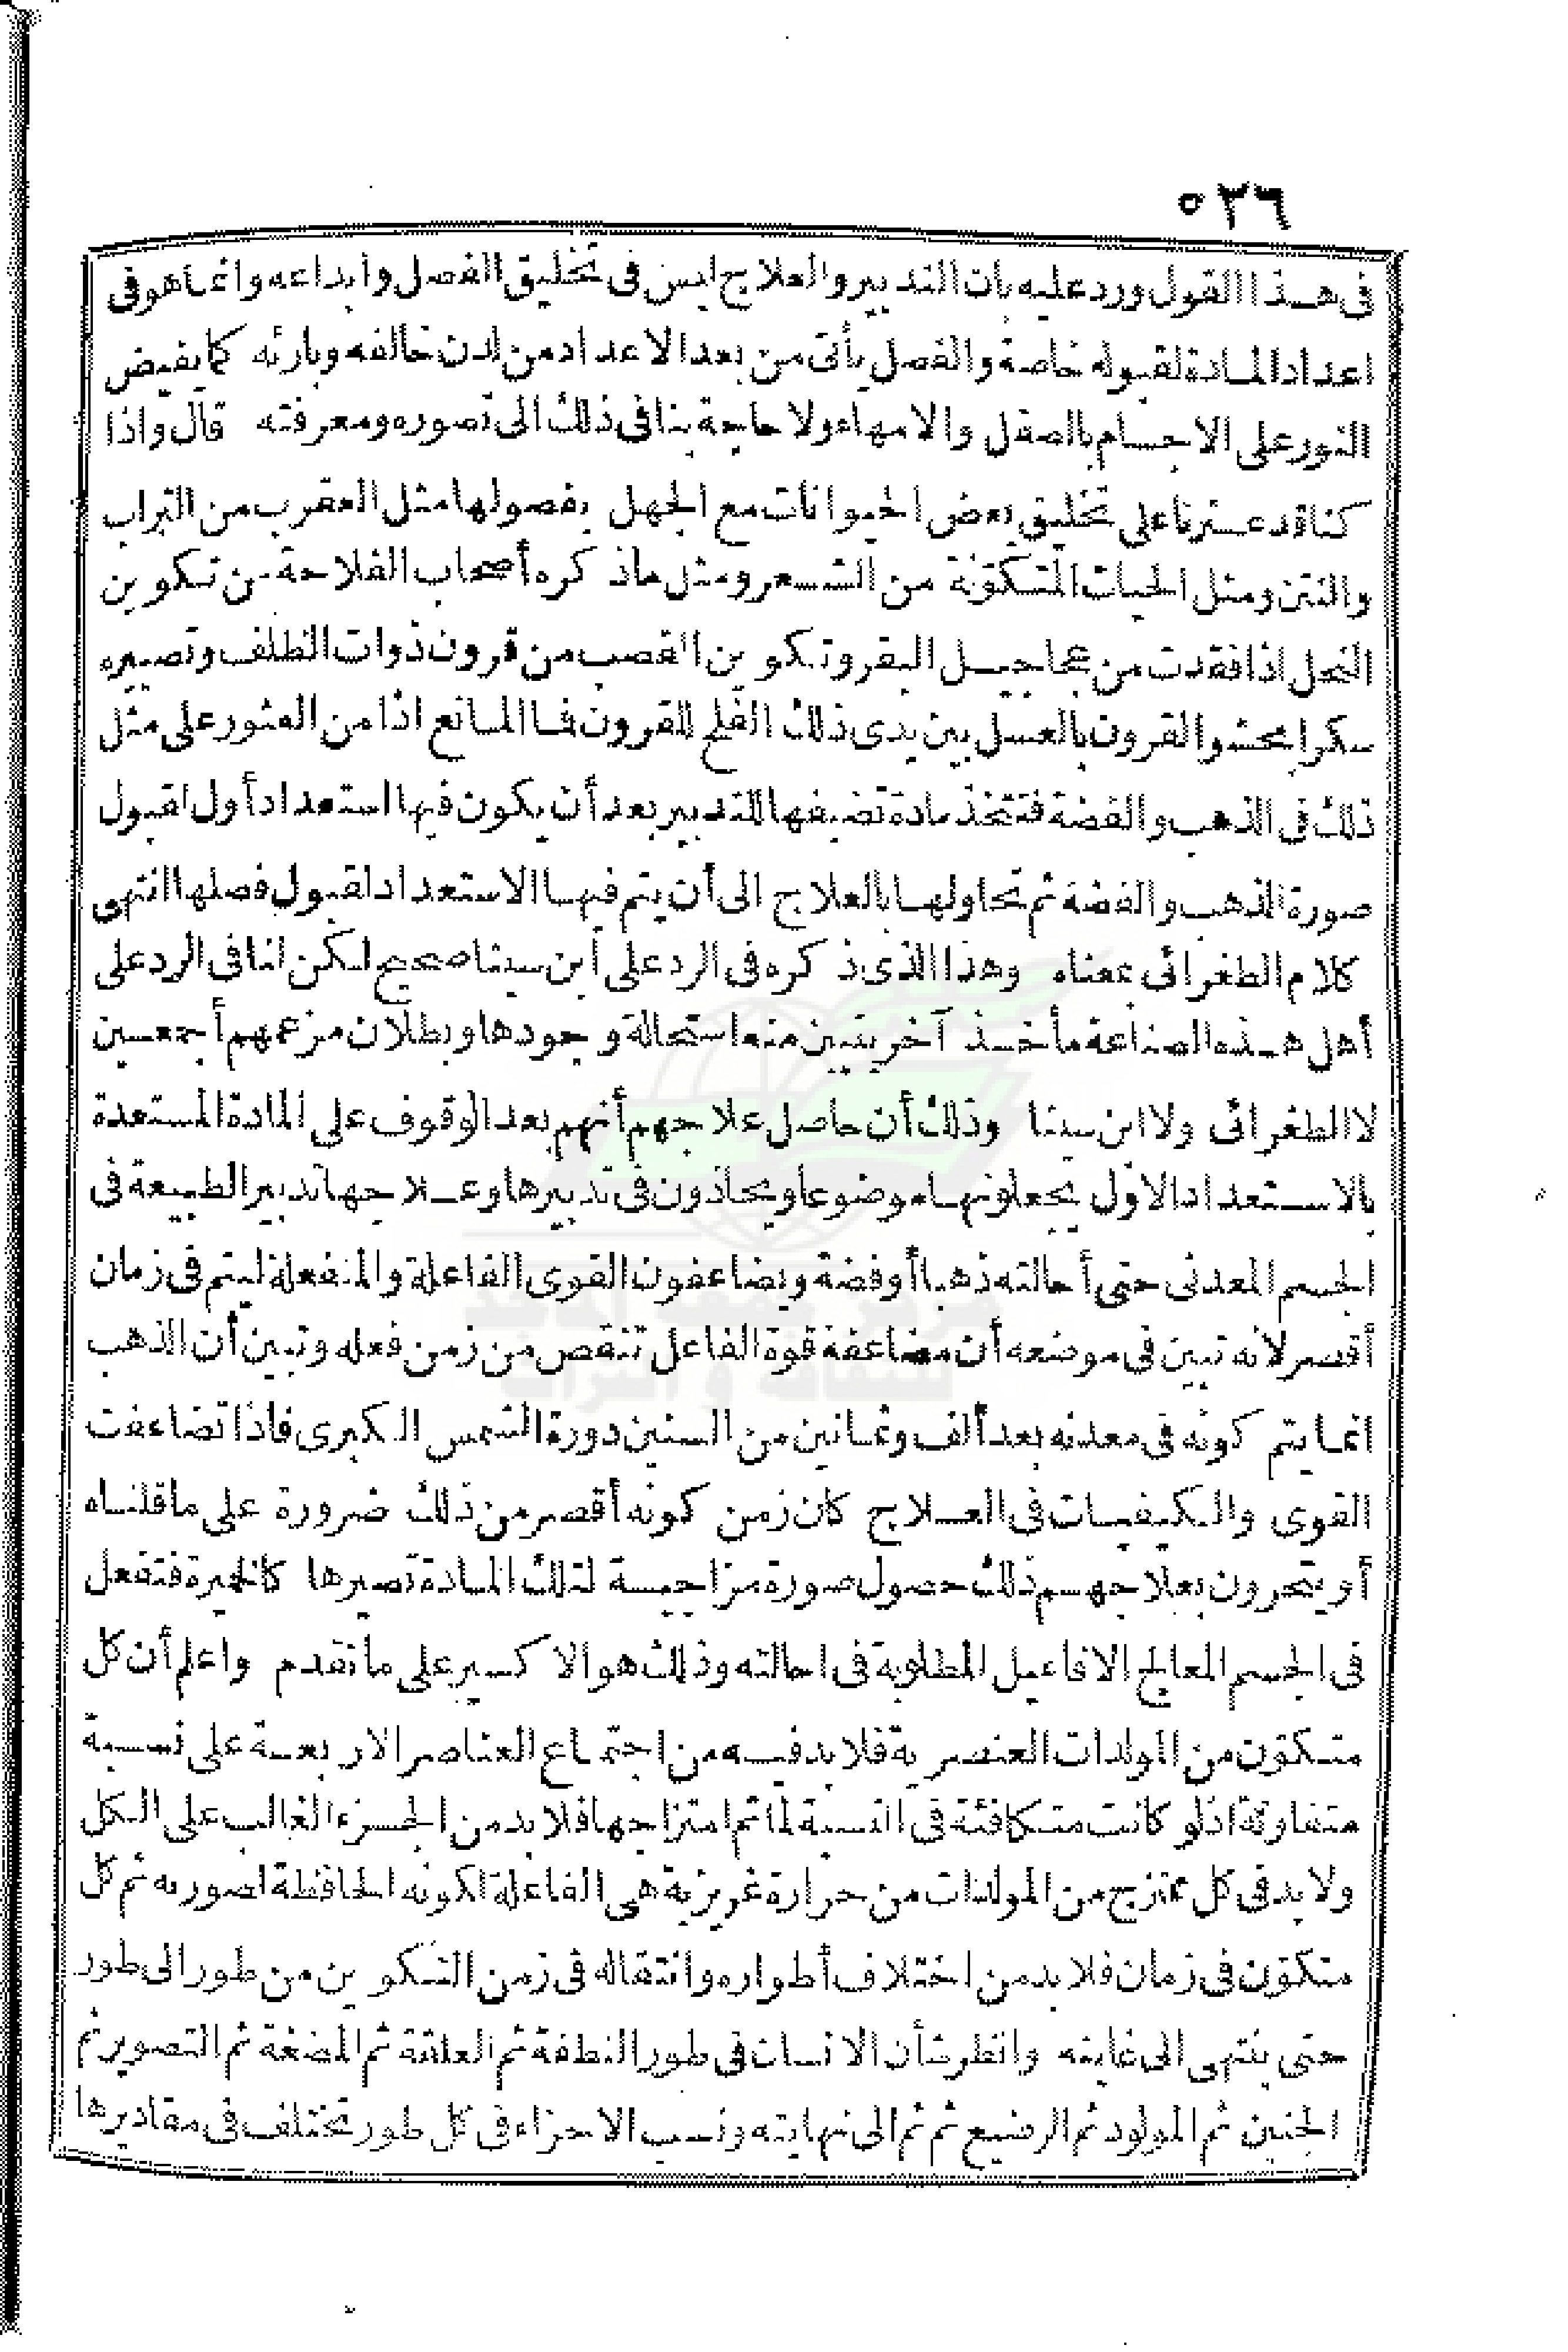 ٥٣٦
فى هذا القول ورد عليه بان التدبير والعلاج ليس فى تخليق الفصل وابداعه وانما هو فى
اعداد المادة لقبوله خاصة والفصل يأتى من بعد الاعداد من لدن خالقه وبارئه كما يفيض
النور على الاجسام بالصقل والامهاء ولا حاجة بنا فى ذلك الى تصوره ومعرفته قال واذا
كنا قد عثرنا على تخليق بعض الحيوانات مع الجهل بفصولها مثل العقرب من التراب
والنتن ومثل الحيات المتكونة من الشعر ومثل ما ذكره أصحاب الفلاحة من تكوين
النحل اذا فقدت من عجاجيل البقر وتكوين القصب من قرون ذوات الظلف وتصييره
سكرا بحشو القرون بالعسل بين يدى ذلك الفلح للقرون فما المانع اذا من العثور على مثل
ذلك فى الذهب والفضة فتتخذ مادة تضيفها للتدبير بعد أن يكون فيها استعداد أول لقبول
صورة الذهب والفضة ثم تحاولها بالعلاج الى أن يتم فيها الاستعداد لقبول فصلها انتهى
كلام الطغرائى بمعناه وهذا الذى ذكره فى الرد على ابن سينا صحيح لكن لنا فى الرد على
أهل هذه الصناعة مأخذ آخر يتبين منه استحالة وجودها وبطلان مزعمهم أجمعين
لا الطغرائى ولا ابن سينا وذلك أن حاصل علاجهم أنهم بعد الوقوف على المادة المستعدة
بالاستعداد الاول يجعلونها موضوعا ويحاذون فى تدبيرها وعلاجها تدبير الطبيعة فى
الجسم المعدنى حتى أحالته ذهبا أو فضة ويضاعفون القوى الفاعلة والمنفعلة ليتم فى زمان
أقصر لانه تبين فى موضعه أن مضاعفة قوة الفاعل تنقص من زمن فعله وتبين أن الذهب
انما يتم كونه فى معدنه بعد ألف وثمانين من السنين دورة الشمس الكبرى فاذا تضاعفت
القوى والكيفيات فى العلاج كان زمن كونه أقصر من ذلك ضرورة على ما قلناه
أو يتحرون بعلاجهم ذلك حصول صورة مزاجية لتلك المادة تصيرها كالخميرة فتفعل
فى الجسم المعالج الافاعيل المطلوبة فى احالته وذلك هو الاكسير على ما تقدم واعلم أن كل
متكون من المولدات العنصرية فلا بد فيه من اجتماع العناصر الاربعة على نسبة
متفاوتة اذ لو كانت متكافئة فى النسبة لما تم امتزاجها فلا بد من الجزء الغالب على الكل
ولا بد فى كل ممتزج من المولدات من حرارة غريزية هى الفاعلة لكونه الحافظة لصورته ثم كل
متكون فى زمان فلا بد من اختلاف أطواره وانتقاله فى زمن التكوين من طور الى طور
حتى ينتهى الى غايته وانظر شأن الانسان فى طور النطفة ثم العلقة ثم المضغة ثم التصوير ثم
الجنين ثم المولود ثم الرضيع ثم ثم الى نهايته ونسب الاجزاء فى كل طور تختلف فى مقاديرها